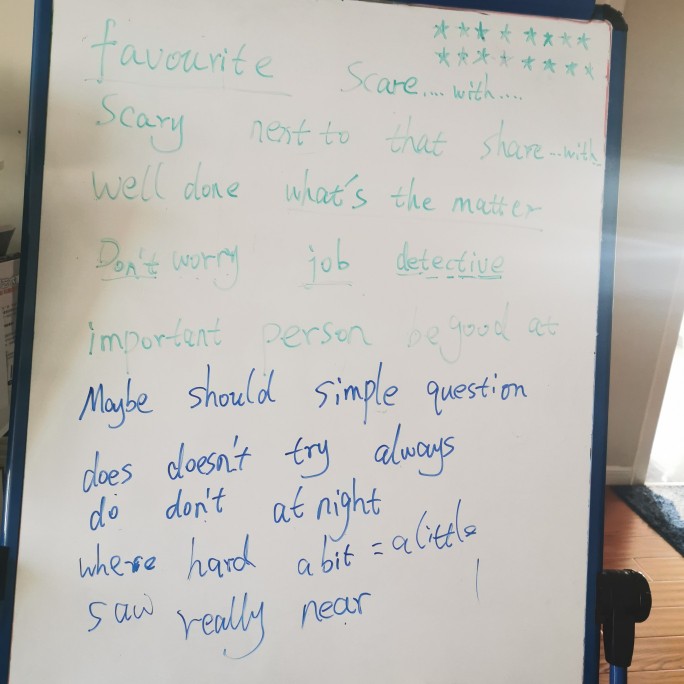 favourite Scare....with....
Scary next to that share...with
well done what's the matter
Don't worry job detective
important person be good at
Maybe should simple question
does doesn't try always
do don't at night
where hard a bit = a little
saw really near